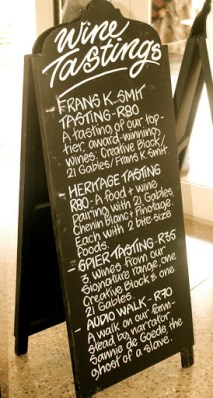 Wine
Tastings
FRANS K. SMIT
TASTING - R80
A tasting of our top-
tier, award-winning
wines. Creative Block/
21 Gables/Frans K. Smit.
- HERITAGE TASTING
R80 - A food + wine
pairing with 21 Gables
Chenin Blanc + Pinotage.
Each with 2 bite-size
foods.
- SPIER TASTING - R35
3 wines from our
Signature range, one
Creative Block + one
21 Gables.
- AUDIO WALK - R70
A walk on our farm-
stead by narrator
Sannie de Goede, the
ghost of a slave.